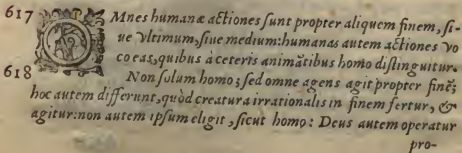 617 OMnes humanæ actiones sunt propter aliquem finem, si-
ue vltimum, siue medium: humanas autem actiones vo
co eas, quibus à ceteris animãtibus homo distinguitur.
618 Non solum homo; sed omne agens agit propter finẽ;
hoc autem differunt, quòd creatura irrationalis in finem fertur, &
agitur: non autem ipsum eligit, sicut homo: Deus autem operatur
pro-